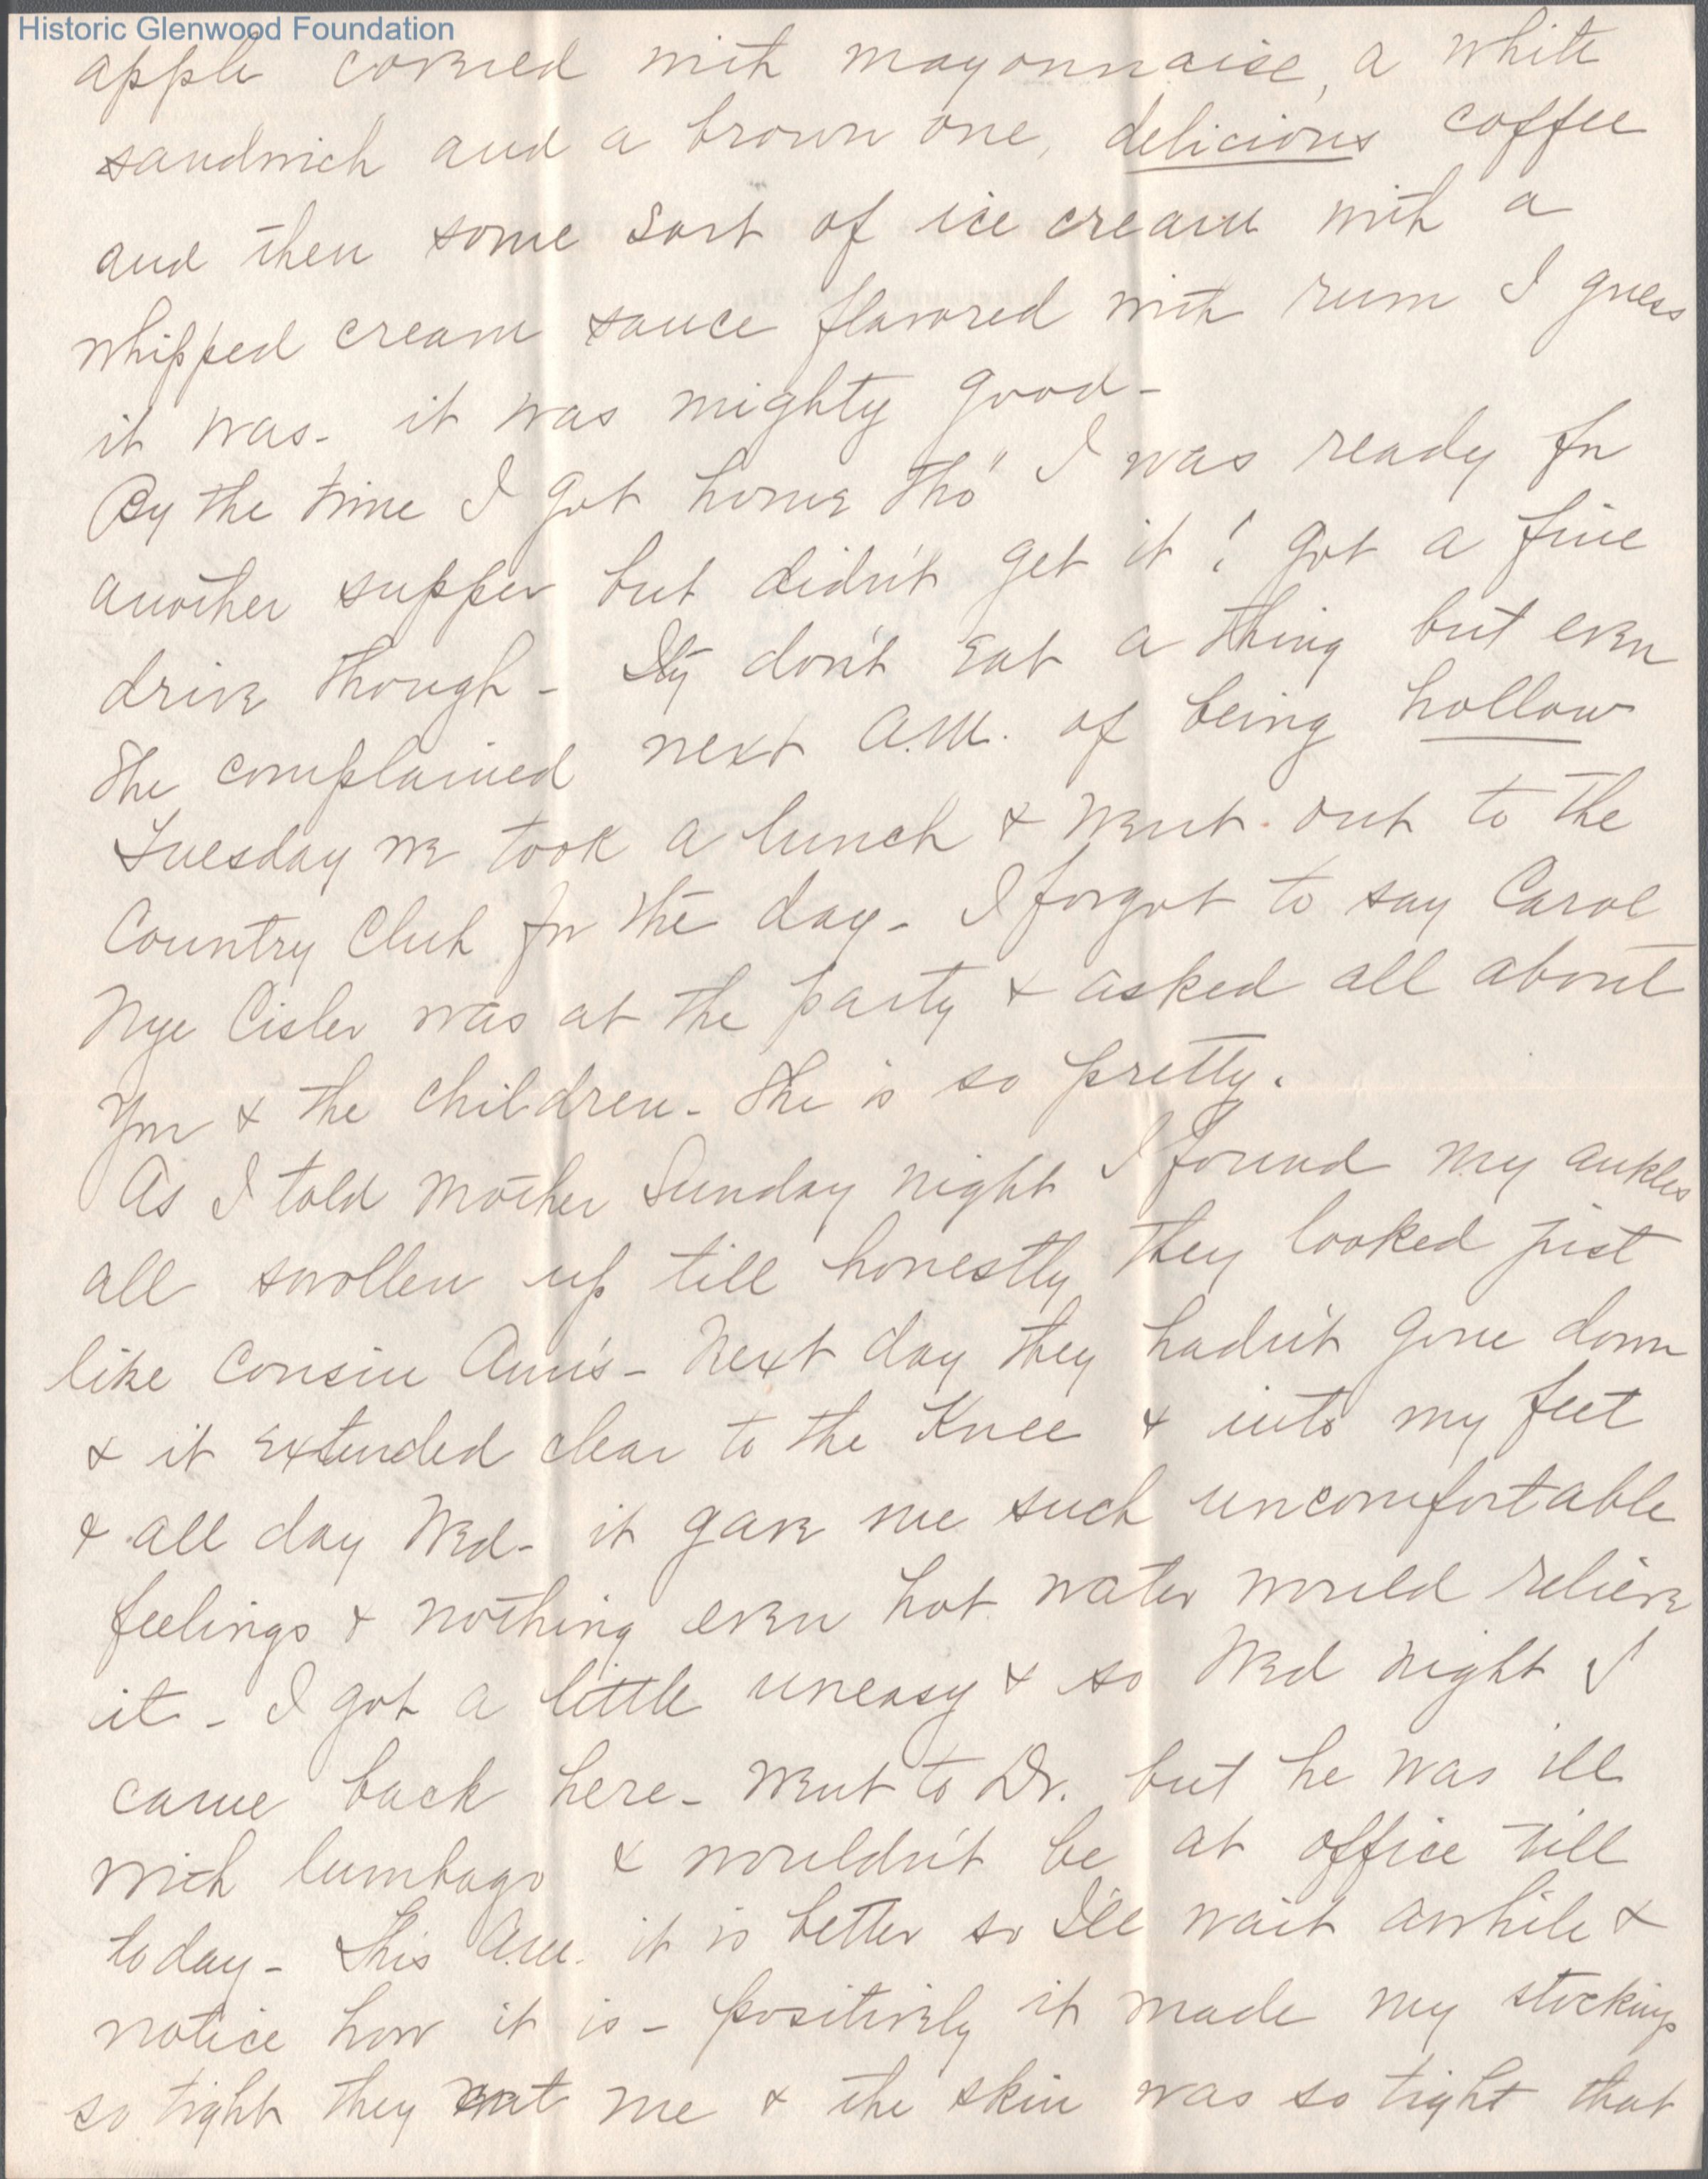 Historic Glenwood Foundation
apple covered with mayonnaise, a white
sandwich and a brown one, delicious coffee
and then some sort of ice cream with a
whipped cream sauce flavored with rum I guess
it was - it was mighty good -
By the time I got home tho' I was ready for
another supper but didn't get it! got a fine
drive though - don't eat a thing but even
She complained next A.M. of being hollow
Tuesday we took a lunch & went out to the
Country Club for the day - I forgot to say Carol
Nye Cisler was at the party & asked all about
you & the children - She is so pretty.
As I told Mother Sunday night I found my ankles
all swollen up till honestly they looked just
like Cousin Ann's - Next day they hadn't gone down
& it extended clear to the Knee & into my feet
& all day Wed - it gave me such uncomfortable
feelings & nothing even hot water would relieve
it - I got a little uneasy & so Wed night I
came back here - Went to Dr. but he was ill
with lumbago & wouldn't be at office till
today - This A.M. it is better so I'll wait awhile &
notice how it is - positively it made my stockings
so tight they me & the skin was so tight that